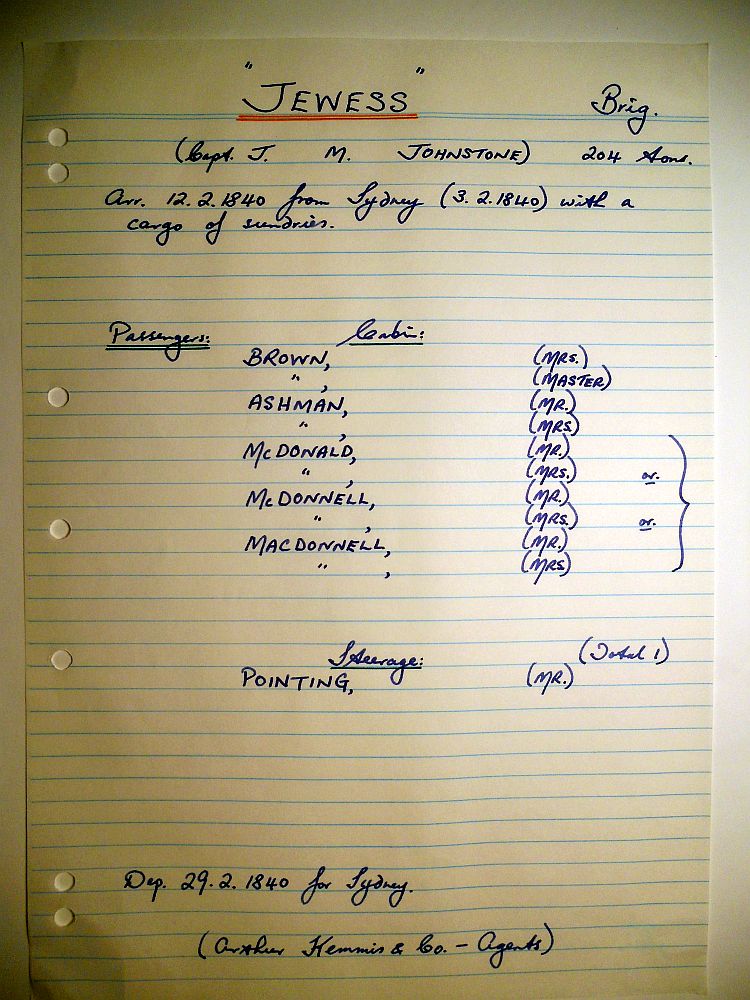 "JEWESS" Brig.
(Capt. J. M. JOHNSTONE) 204 tons.
Arr. 12.2.1840 from Sydney (3.2.1840) with a
cargo of sundries.
Passengers: Cabin:
BROWN, (MRS.)
" , (MASTER)
ASHMAN, (MR.)
" , (MRS)
McDONALD, (MR.)
" , (MRS.) or.
McDONNELL, (MR.)
" , (MRS.) or.
MACDONNELL, (MR.)
" , (MRS)
Steerage: (Total 1)
POINTING, (MR.)
Dep. 29.2.1840 for Sydney.
(Arthur Kemmis & Co. - Agents)